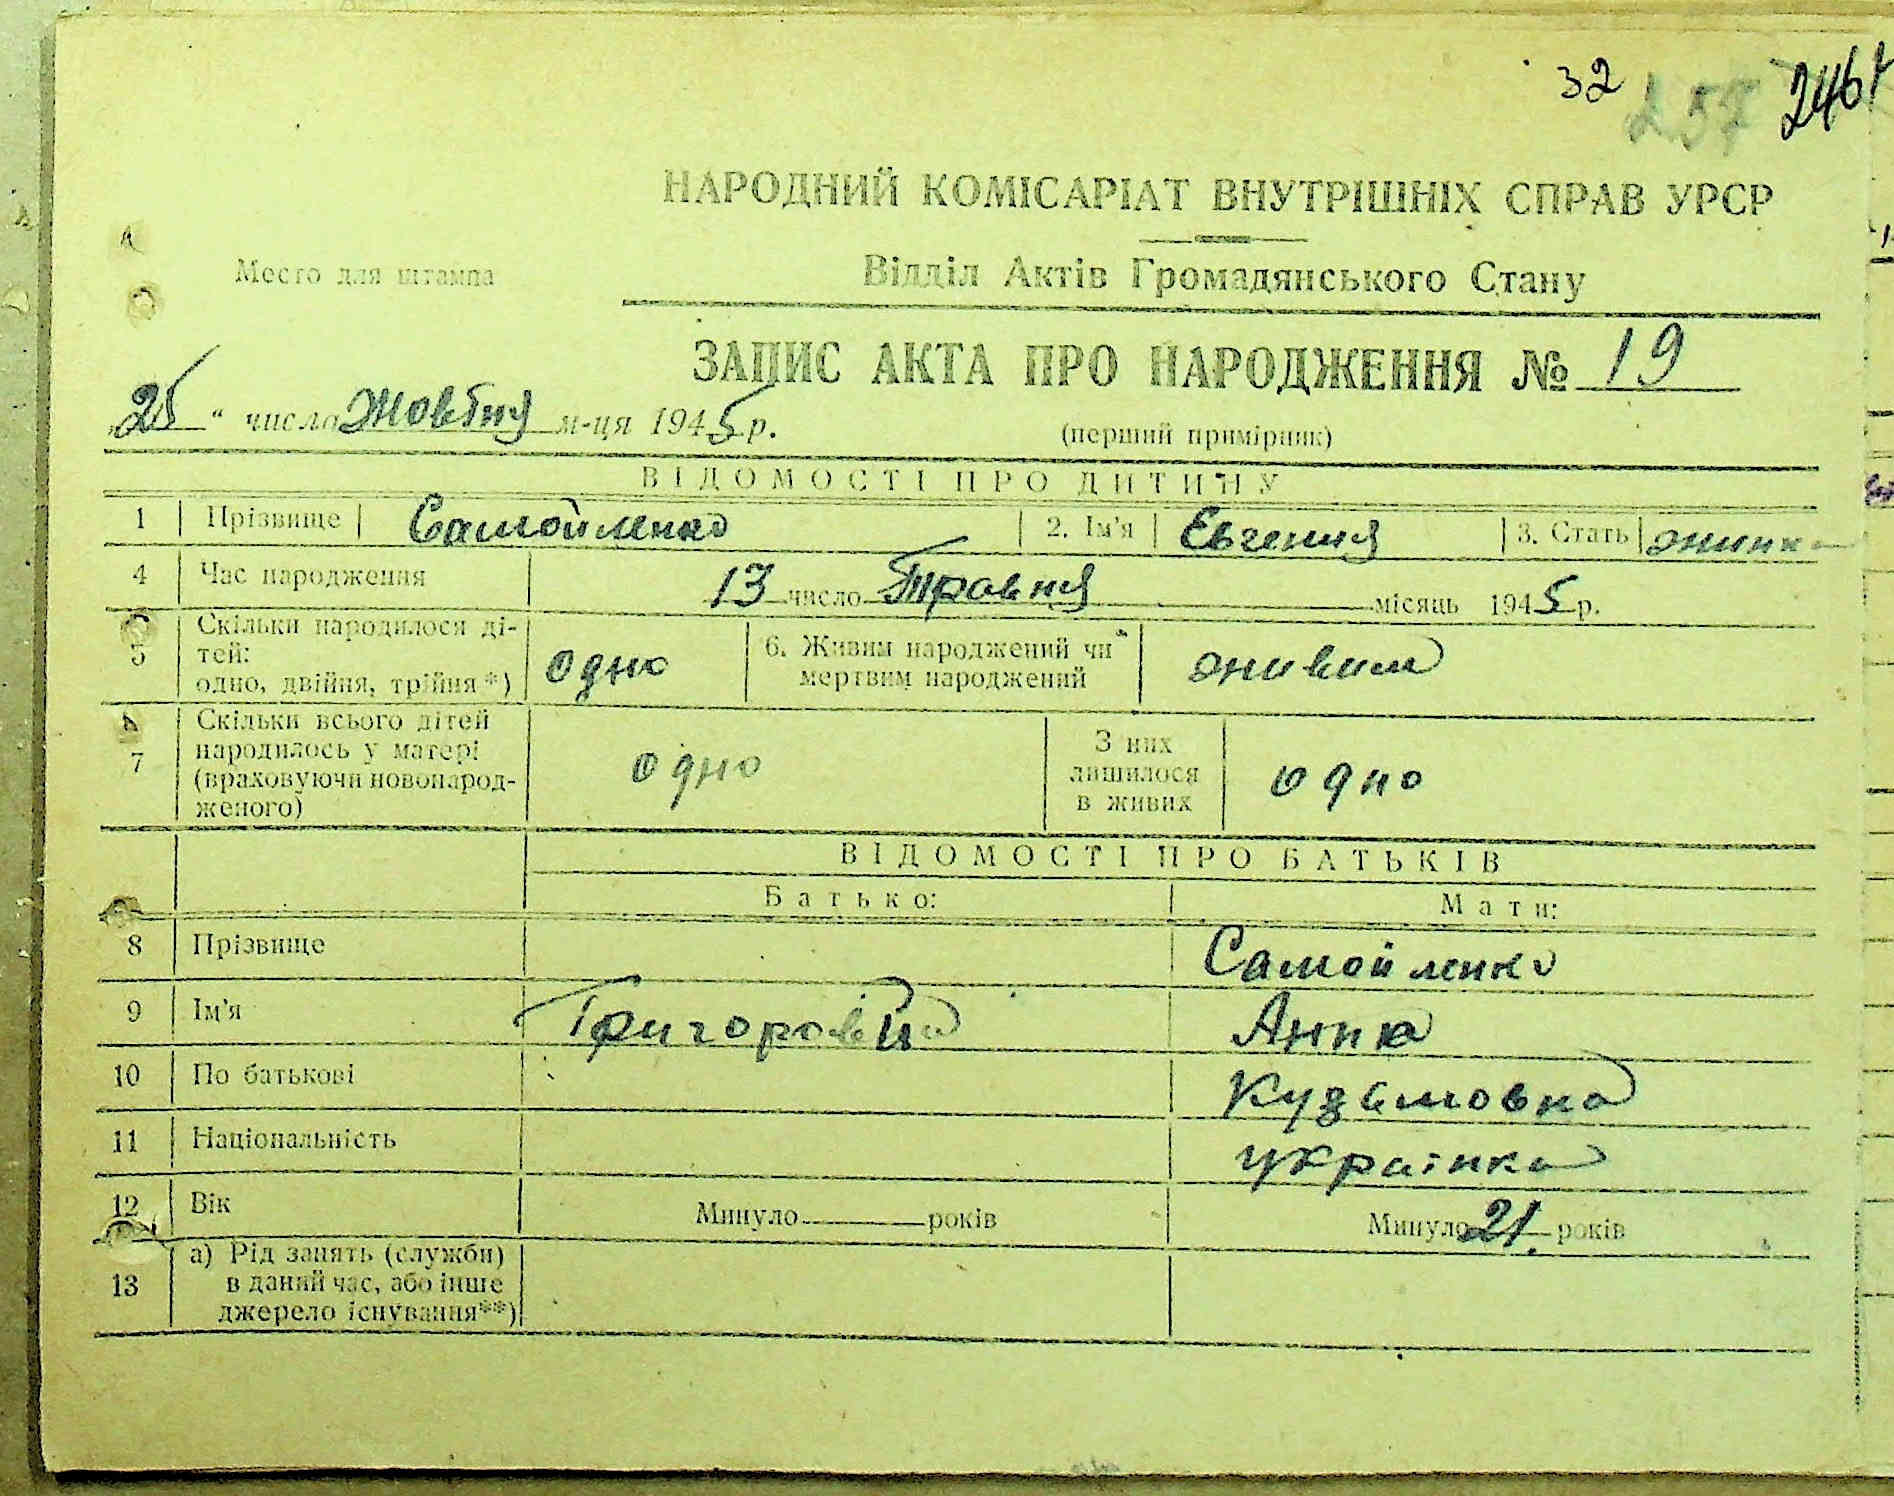 32 257 246
НАРОДНИЙ КОМІСАРІАТ ВНУТРІШНІХ СПРАВ УРСР
Место для штампа
Відділ Актів Громадянського Стану
ЗАПИС АКТА ПРО НАРОДЖЕННЯ № 19
„25“ число Жовтня м-ця 1945 р.
(перший примірник)
ВІДОМОСТІ ПРО ДИТИНУ
1 Прізвище Самойленко 2. Ім'я Евгения 3. Стать жинка
4 Час народження 13 число Травня місяць 1945 р.
5 Скільки народилося ді-
тей:
одно, двійня, трійня*) одно 6. Живим народжений чи
мертвим народжений живим
7 Скільки всього дітей
народилось у матері
(враховуючи новонарод-
женого) одно З них
лишилося
в живих одно
ВІДОМОСТІ ПРО БАТЬКІВ
Батько: Мати:
8 Прізвище Самойленко
9 Ім'я Анна
10 По батькові Кузьмовна
11 Національність українка
12 Вік Минуло років Минуло 21 років
13 а) Рід занять (служби)
в даний час, або інше
джерело існування**)